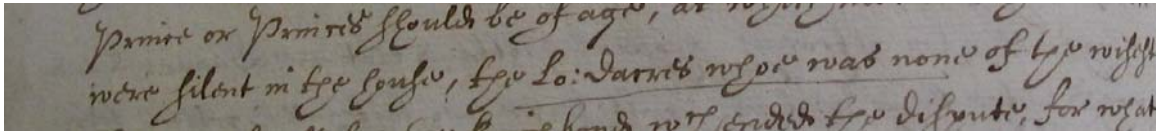 Prince or Princes should be of age, at
were silent in the house, the Lo: Dacres whoe was none of the wisest
hand wch ended the dispute, for what